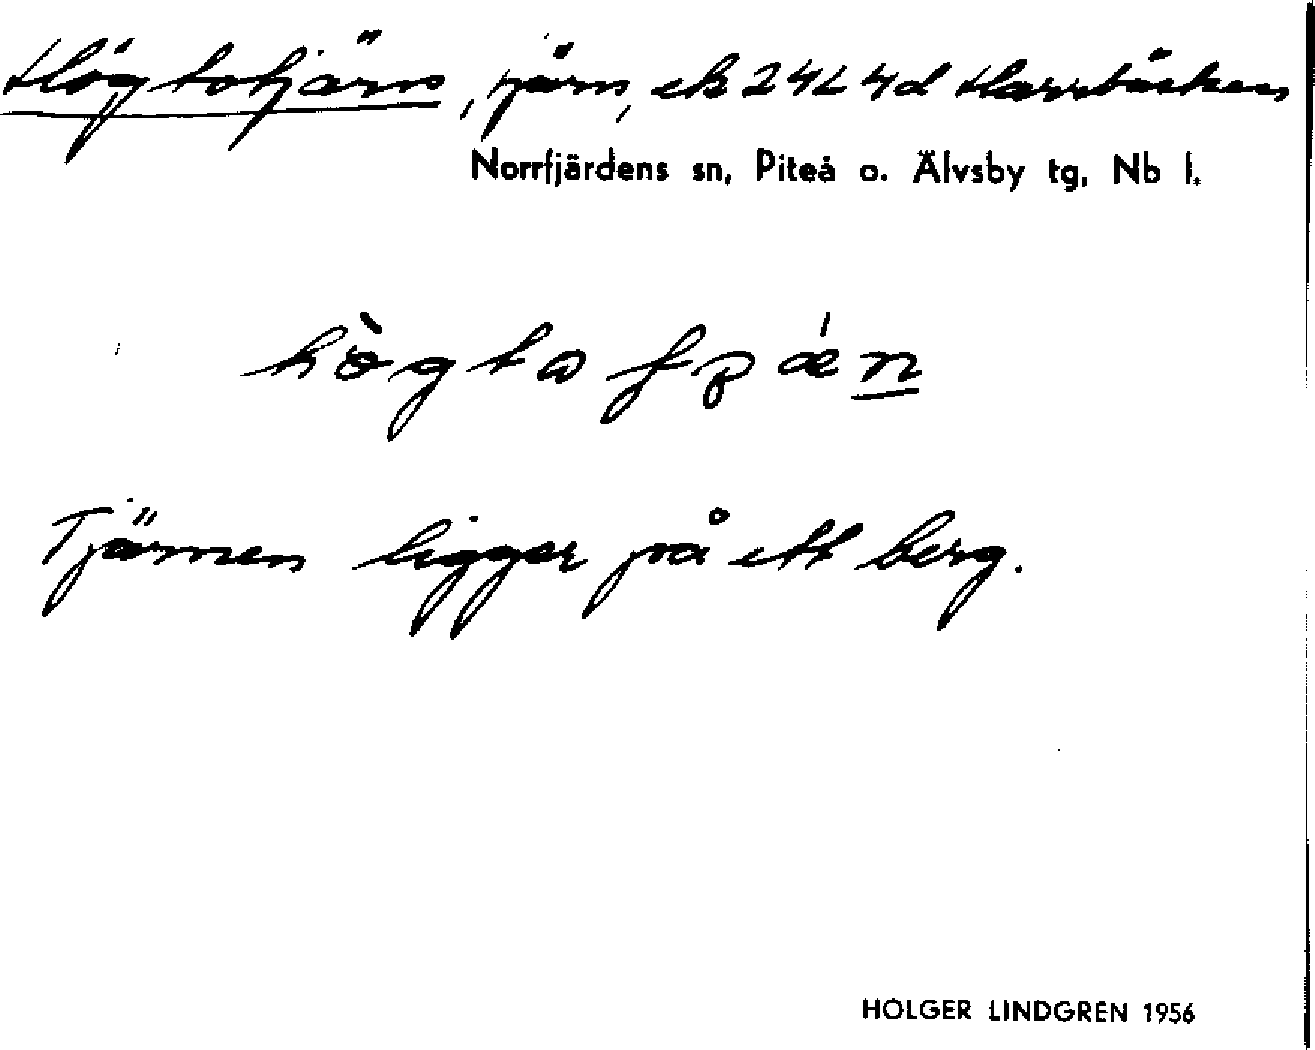 Högtotjärn, tjärn, ek 24L4d Harrbäcken
Norrfjärdens sn, Piteå o. Älvsby tg, Nb l.
Tjärnen ligger på ett berg.
HOLGER LINDGREN 1956